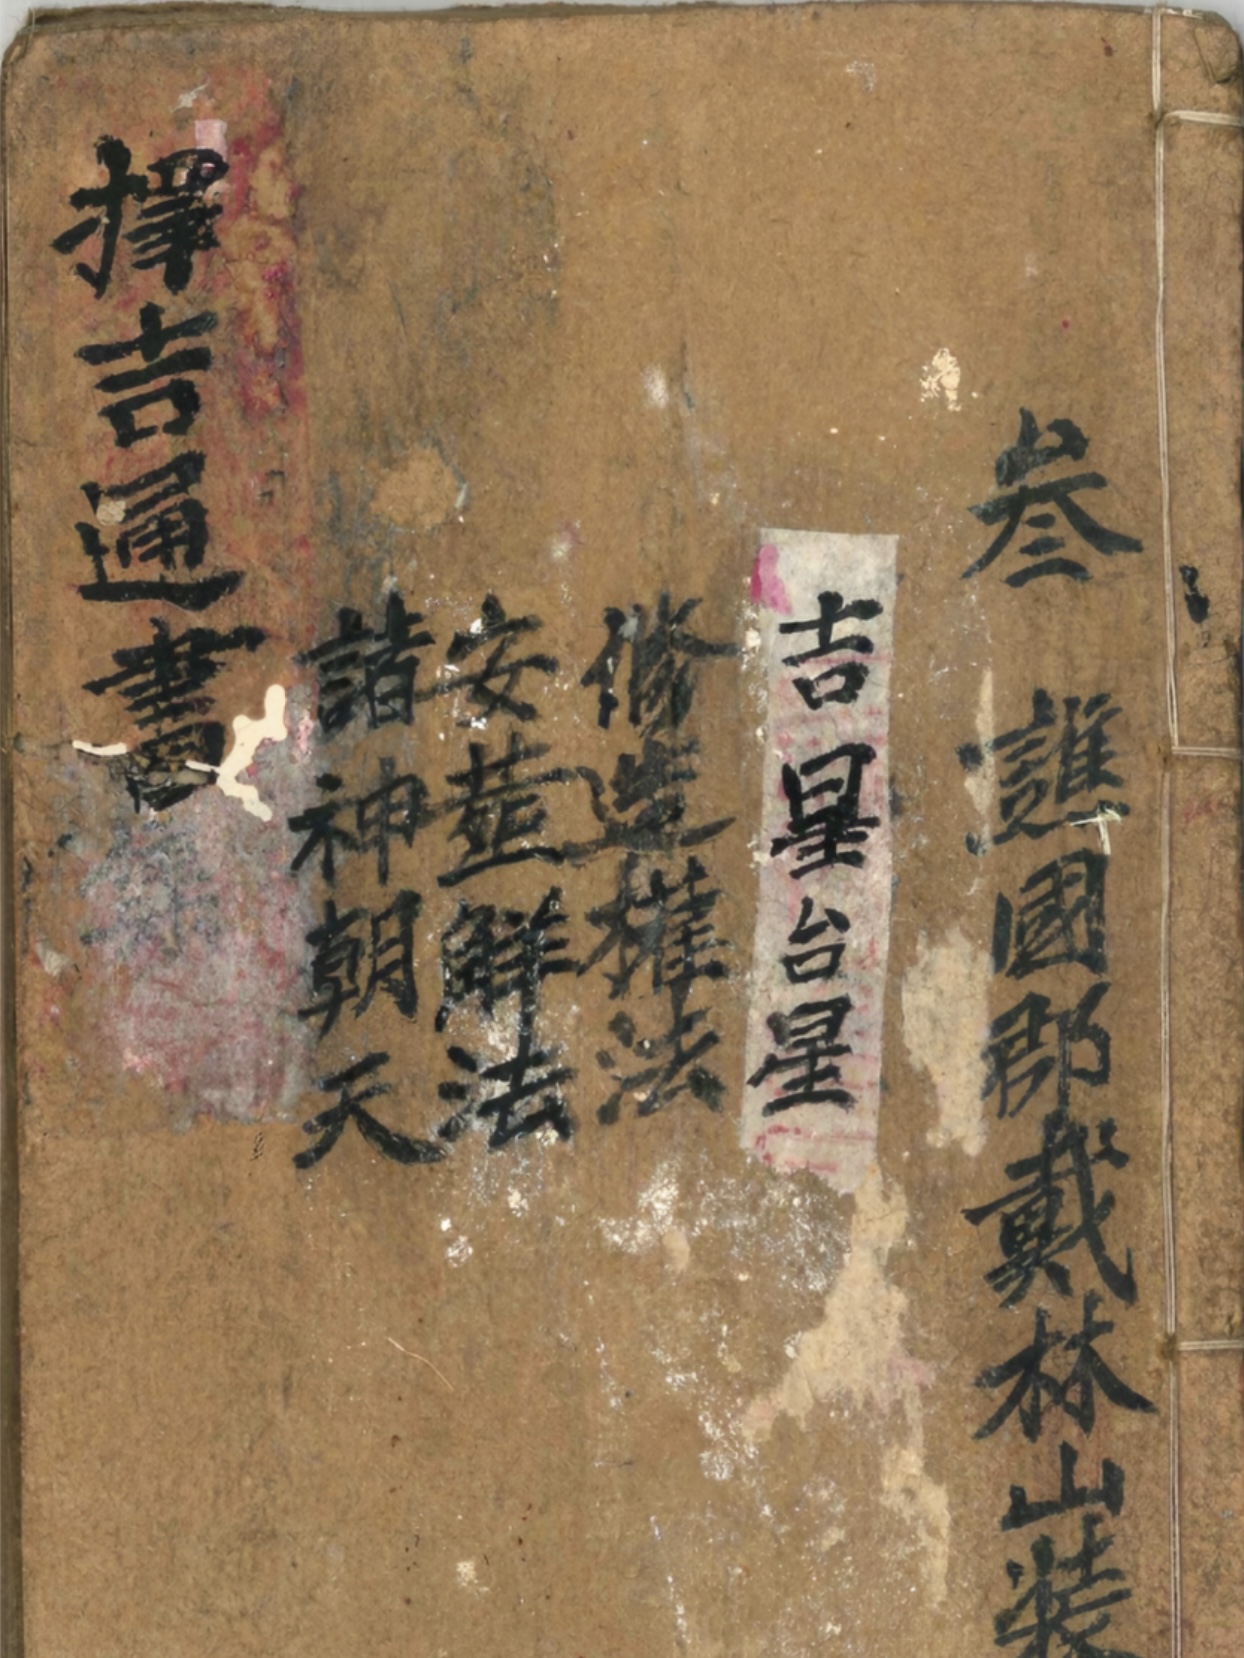 叁 譙國郡戴林山裝
吉星台星
脩造權法
安塟觧法
諸神朝天
擇吉通書